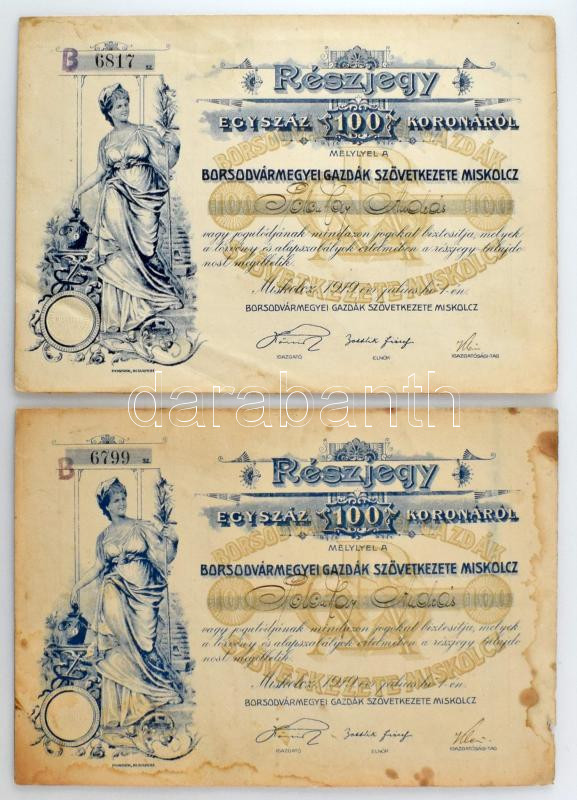 B 6817 sz.
Részjegy
EGYSZÁZ 100 KORONÁRÓL
MELYLYEL A
BORSODVÁRMEGYEI GAZDÁK SZÖVETKEZETE MISKOLCZ
100 100
vagy jogutódjának mindazon jogokat biztosítja, melyek
a törvény és alapszabályok értelmében a részjegy tulajdo
nost megilletik.
Miskolcz, 1919 évi július hó 1-én.
BORSODVÁRMEGYEI GAZDÁK SZÖVETKEZETE MISKOLCZ
IGAZGATÓ ELNÖK IGAZGATÓSÁGI-TAG
POSNER, BUDAPEST
darabanth
B 6799 sz.
Részjegy
EGYSZÁZ 100 KORONÁRÓL
MELYLYEL A
BORSODVÁRMEGYEI GAZDÁK SZÖVETKEZETE MISKOLCZ
100 100
vagy jogutódjának mindazon jogokat biztosítja, melyek
a törvény és alapszabályok értelmében a részjegy tulajdo
nost megilletik.
Miskolcz, 1919 évi július hó 1-én.
BORSODVÁRMEGYEI GAZDÁK SZÖVETKEZETE MISKOLCZ
IGAZGATÓ ELNÖK IGAZGATÓSÁGI-TAG
POSNER, BUDAPEST